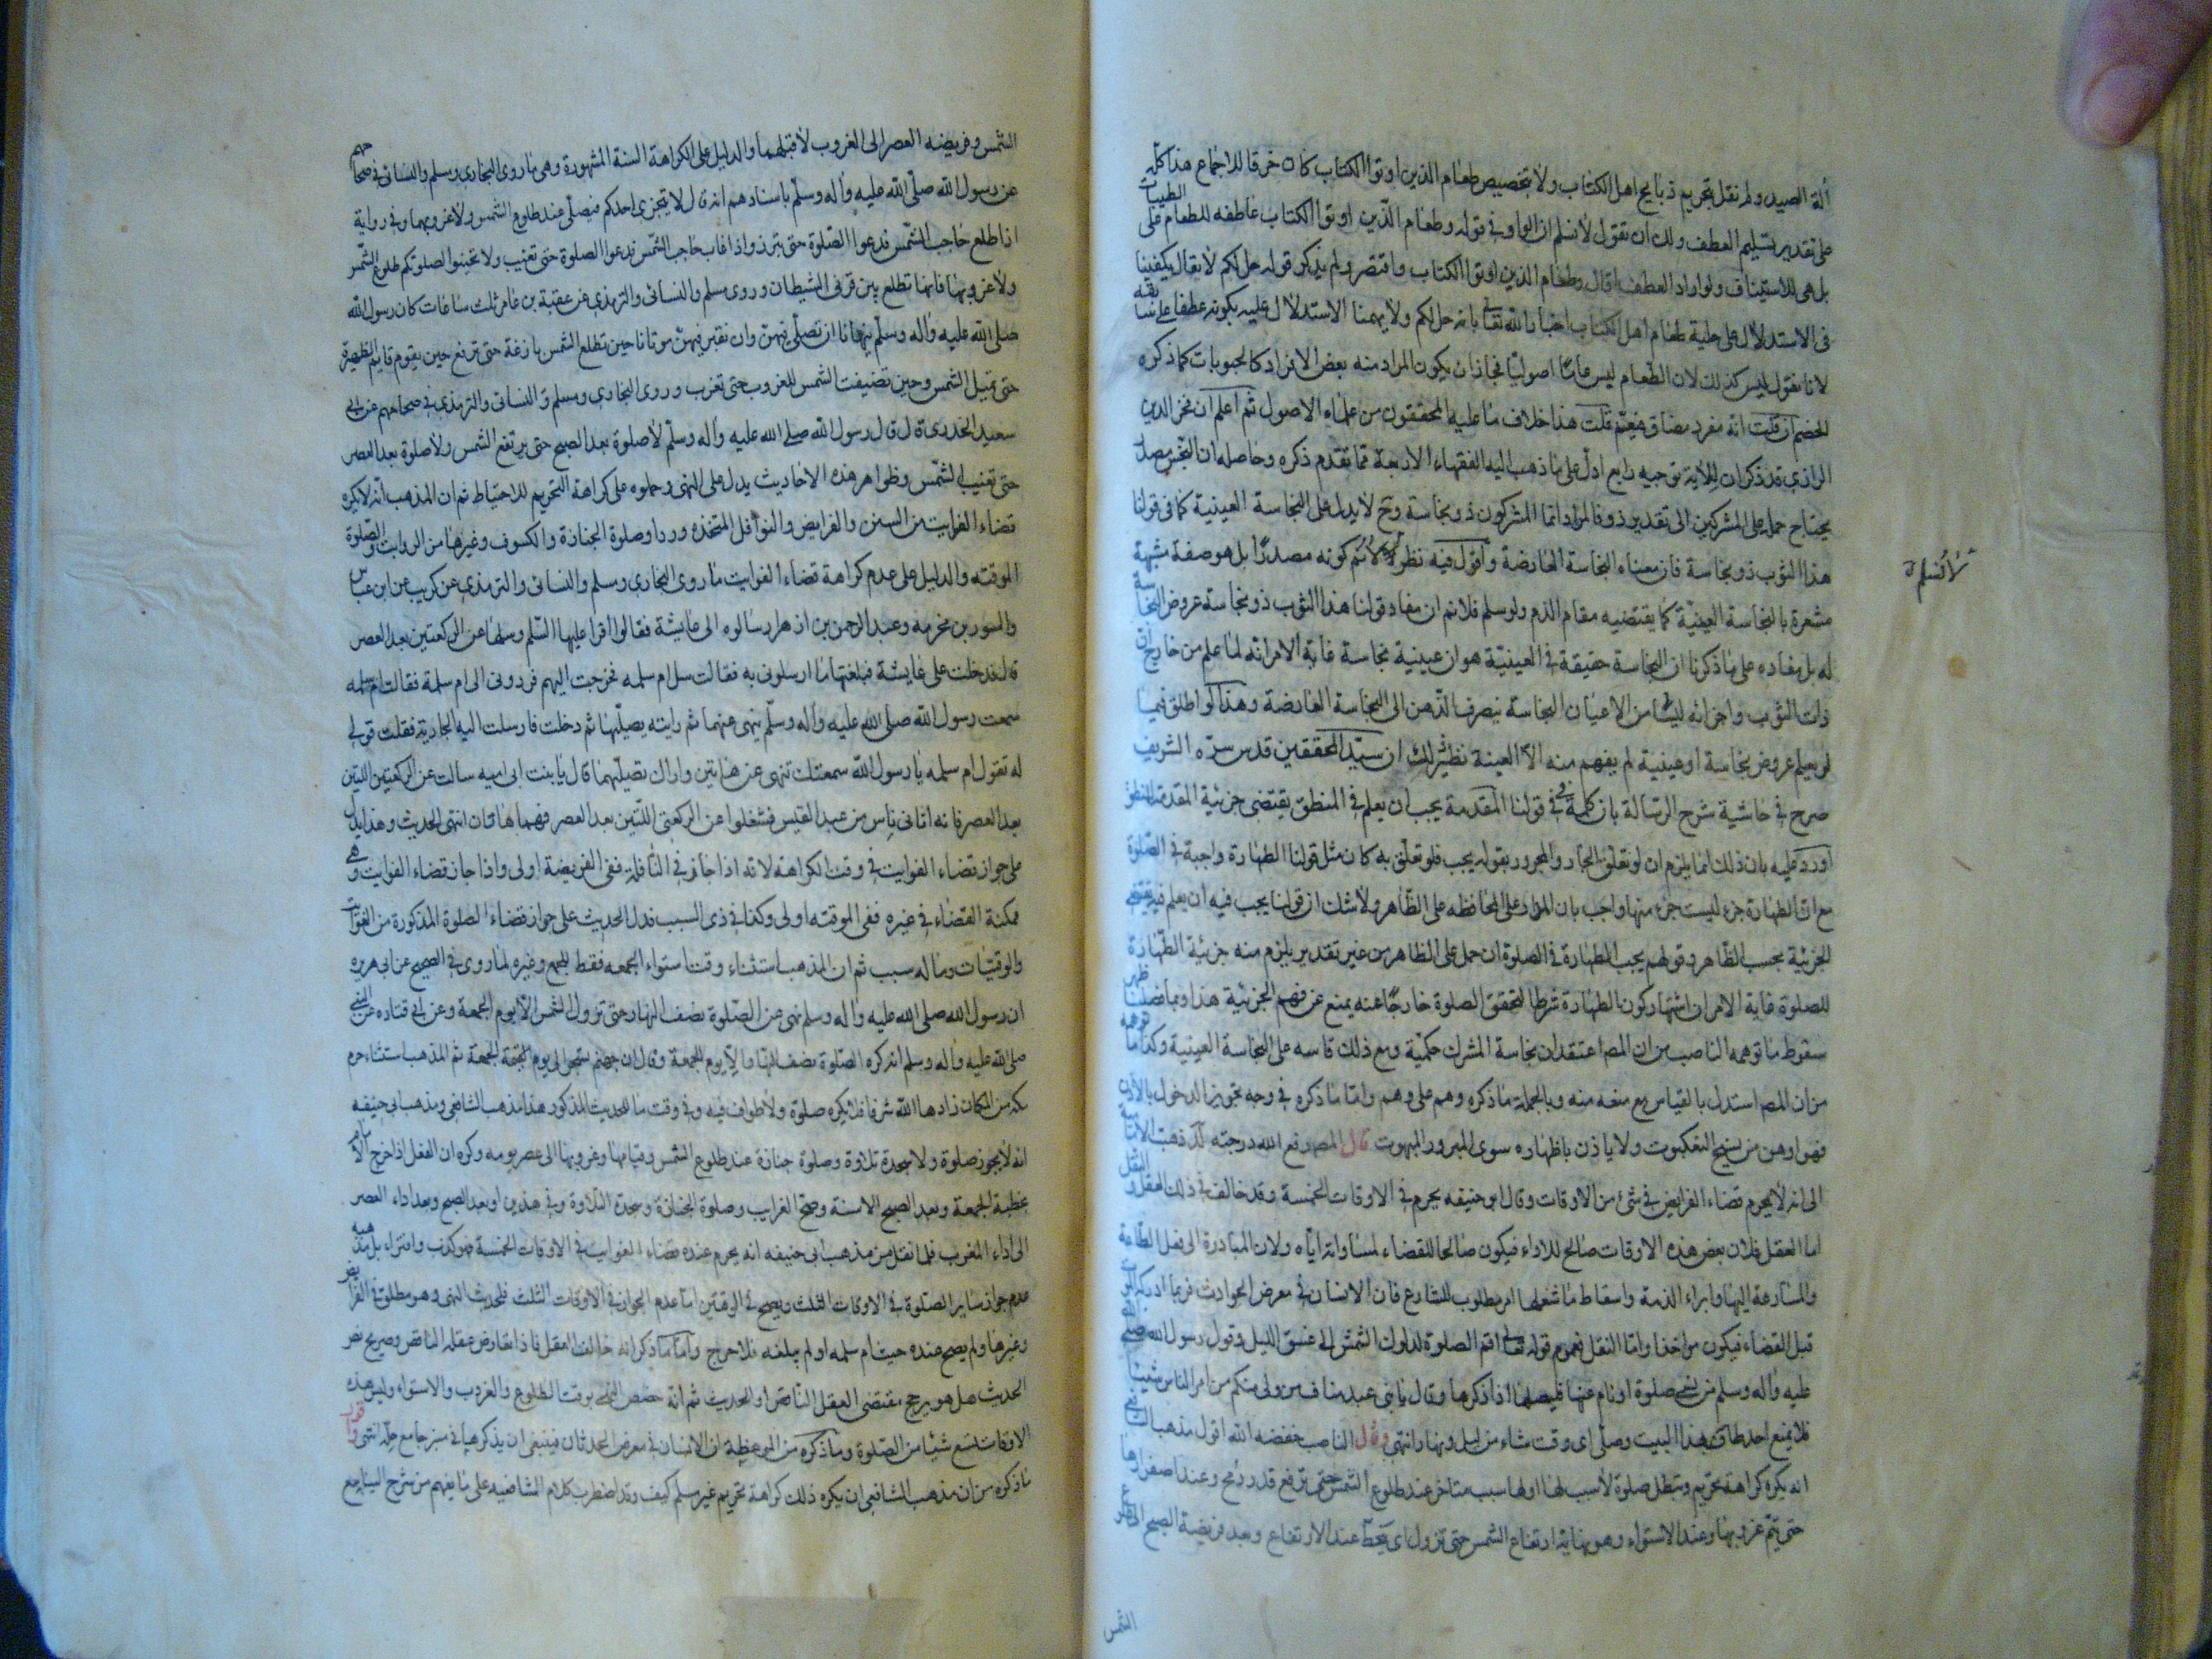 ألة الصيد ولم نقل بتحريم ذبايح اهل الكتاب ولا بتخصيص طعام الذين اوتوا الكتاب كان خرقا للاجماع هذا كله
على تقدير تسليم العطف ولك ان تقول لا نسلم ان الواو في قوله وطعام الذين اوتوا الكتاب عاطفه للطعام على الطيبات
بل هى للاستيناف ولو اراد العطف لقال وطعام الذين اوتوا الكتاب واقتصر ولم يذكر قوله حل لكم لا يقال يكفينا
فى الاستدلال على حلية طعام اهل الكتاب اخبار الله تعالى بانه حل لكم ولا يهمنا الاستدلال عليه بكونه عطفا على
لانا نقول ليس كذلك لان الطعام ليس عاما اصوليا فجاز ان يكون المراد منه بعض الافراد كالحبوبات كما ذكره
الخصم ان قلت انه مفرد مضاف فيعم قلت هذا خلاف ما عليه المحققون من علماء الاصول ثم اعلم ان فخر الدين
الرازى قد ذكر ان للاية توجيه رابع ادل على ما ذهب اليه الفقهاء الاربعة مما تقدم ذكره وحاصله ان النجس مصدر
يحتاج حمله على المشركين الى تقدير ذو فالمراد انما المشركون ذو نجاسة وح لا يدل على النجاسة العينية كما فى قولنا
هذا الثوب ذو نجاسة فان معناه النجاسة العارضة واقول فيه نظر لانا لا نم كونه مصدرا بل هو صفة مشبهة
لا نسلم
مشعرة بالنجاسة العينية كما يقتضيه مقام الذم ولو سلم فلا نم ان مفاد قولنا هذا الثوب ذو نجاسة عروض النجاسة
له بل مفاده على ما ذكرنا ان النجاسة حقيقة في العينية هو ان عينية نجاسة غاية الامر انه لما علم من خارج ان
ذات الثوب واجزائه ليستا من الاعيان النجاسة ينصرف الذهن الى النجاسة العارضة وهذا لو اطلق فيما
لم يعلم عروض نجاسة او عينية لم يفهم منه الا العينة نظير ذلك ان سيد المحققين قدس سره الشريف
صرح في حاشية شرح الرسالة بان كلمة في في قولنا المقدمة يجب ان يعلم في المنطق يقتضى جزئية المقدمة للمنطق
اورد عليه بان ذلك انما يلزم ان لو تعلق الجار والمجرور بقوله يجب فلو تعلق به كان مثل قولنا الطهارة واجبة في الصلوة
مع ان الطهارة جزء ليست جزء منها واجب بان المراد على المحافظه على الظاهر ولا شك ان قولنا يجب فيه ان يعلم فيه يقتضى
الجزئية بحسب الظاهر وقولهم يجب الطهارة في الصلوة ان حمل على الظاهر من غير تقدير يلزم منه جزئية الطهارة
للصلوة غاية الامر ان اشتهار كون الطهارة شرطا لتحقق الصلوة خارجا عنه يمنع عن فهم الجزئية هذا وبما فصلنا ظهر
سقوط ما توهمه الناصب من ان المص اعتقد ان نجاسة المشرك حكمية ومع ذلك قاسه على النجاسة العينية وكذا ما توهمه
من ان المص استدل بالقياس مع منعه منه وبالجملة ما ذكره وهم على وهم واما ما ذكره في وجه تجويز الدخول بالاذن
فهو اوهن من نسيج العنكبوت ولا ياذن باظهاره سوى المبرود المبهوت قال المصر فع الله درجته ذهبت الامامية
الى انه لا يحرم قضاء الفرايض في شئ من الاوقات وقال ابو حنيفه يحرم في الاوقات الخمسة وقد خالف في ذلك العقل والنقل
اما العقل فلان بعض هذه الاوقات صالح للاداء فيكون صالحا للقضاء لمساواته اياه ولان المبادرة الى فعل الطاعة
والمسارعة اليها وابراء الذمة واسقاط ما شغلها امر مطلوب للشارع فان الانسان في معرض الحوادث فربما ادركه الموت
قبل القضاء فيكون مواخذا واما النقل فعموم قوله تعالى اقم الصلوة لدلوك الشمس الى غسق الليل وقول رسول الله صلى الله
عليه واله وسلم من نسى صلوة او نام عنها فليصلها اذا ذكرها وقال يا بنى عبد مناف من ولى منكم من امر الناس شيئا
فلا يمنع احد طاف بهذا البيت وصلى اى وقت شاء من ليل ونهار انتهى وقال الناصب خفضه الله اقول مذهب الشافعى
انه يكره كراهة تحريم وتبطل صلوة لا سبب لها او لها سبب متاخر عند طلوع الشمس حتى ترتفع قدر رمح وعند اصفرارها
حتى يتم غروبها وعند الاستواء وهو نهاية ارتفاع الشمس حتى تزول اى ينحط عند الارتفاع وبعد فريضة الصبح الى طلوع
الشمس
الشمس وفريضه العصر الى الغروب لا قبلهما والدليل على الكراهة السنة المشهورة وهى ما روى البخارى ومسلم والنسائى في صحاحهم
عن رسول الله صلى الله عليه واله وسلم باسنادهم انه قال لا يتحرى احدكم فيصلى عند طلوع الشمس ولا غروبها وفى رواية
اذا طلع حاجب الشمس فدعوا الصلوة حتى تبرز واذا غاب حاجب الشمس فدعوا الصلوة حتى تغيب ولا تحينوا لصلوتكم طلوع الشمس
ولا غروبها فانها تطلع بين قرنى الشيطان وروى مسلم والنسائى والترمذى عن عقبة بن عامر ثلث ساعات كان رسول الله
صلى الله عليه واله وسلم ينهانا ان نصلى فيهن وان نقبر فيهن موتانا حين تطلع الشمس بازغة حتى ترتفع حين يقوم قايم الظهيرة
حتى تميل الشمس وحين تضيفت الشمس للغروب حتى تغرب وروى البخارى ومسلم والنسائى والترمذى في صحاحهم عن ابى
سعيد الخدرى قال قال رسول الله صلى الله عليه واله وسلم لا صلوة بعد الصبح حتى يرتفع الشمس ولا صلوة بعد العصر
حتى تغيب الشمس وظواهر هذه الاحاديث يدل على النهى وحملوه على كراهة التحريم للاحتياط ثم ان المذهب انه لا يكره
قضاء الفوايت من السنن والفرايض والنوافل المتخذه وردا وصلوة الجنازة والكسوف وغيرها من الرواتب والصلوة
الموقته والدليل على عدم كراهة قضاء الفوايت ما روى البخارى ومسلم والنسائى والترمذى عن كريب عن ابن عباس
والمسور بن مخرمه وعبد الرحمن بن ازهر ارسالوه الى عايشة فقالوا اقرا عليها السلم وسلها عن الركعتين بعد العصر
قال فدخلت على عايشة فبلغتها ما ارسلونى به فقالت سل ام سلمه فخرجت اليهم فردونى الى ام سلمة فقالت ام سلمه
سمعت رسول الله صلى الله عليه واله وسلم ينهى عنهما ثم رايته يصليها ثم دخلت فارسلت اليه الجارية فقلت قولى
له تقول ام سلمه يا رسول الله سمعتك تنهى عن هاتين واراك تصليهما قال يا بنت ابى اميه سالت عن الركعتين اللتين
بعد العصر فانه اتانى ناس من عبد القيس فشغلوا عن الركعتى اللتين بعد العصر فهما هاتان انتهى الحديث وهذا يدل
على جواز قضاء الفوايت في وقت الكراهة لانه اذا جاز في النافلة ففى الفريضة اولى واذا جاز قضاء الفوايت وهى
ممكنة القضاء في غيره ففى الموقته اولى وكذا في ذى السبب فدل الحديث على جواز قضاء الصلوة المذكورة من الفوايت
والوقتيات وما له سبب ثم ان المذهب استثناء وقت استواء الجمعه فقط وغيره لما روى في الصحيح عن ابى هريره
ان رسول الله صلى الله عليه واله وسلم نهى عن الصلوة نصف النهار حتى تزول الشمس الا يوم الجمعة وعن ابى قتاده عن النبى
صلى الله عليه واله وسلم انه كره الصلوة نصف النهار الا يوم الجمعة وقال ان جهنم تسجر الا يوم الجمعة ثم المذهب استثناء حرم
مكه من المكان زادها الله شرفا فلا يكره صلوة ولا طواف فيه وفى وقت ما للحديث المذكور هذا مذهب الشافعى ومذهب ابى حنيفه
انه لا يجوز صلوة ولا سجدة تلاوة وصلوة جنازة عند طلوع الشمس وقيامها وغروبها الى عصر يومه وكره ان الفعل اذا خرج الامام
بخطبة الجمعة وبعد الصبح الا سنة وصح الغرايب وصلوة الجنازة وسجدة التلاوة وفى هذين او بعد الصبح وبعد اداء العصر
الى اداء المغرب فلما نقل من مذهب ابى حنيفه انه يحرم عنده قضاء الفوايت في الاوقات الخمسة فهو كذب وافتراء بل مذهبه
عدم جواز ساير الصلوة في الاوقات الثلث ويصح في الوقتين اما عدم الجواز في الاوقات الثلث فلحديث النهى وهو مطلق في الفرايض
وغيرها ولم يصح عنده حديث ام سلمه او لم يبلغه فلا حرج واما ما ذكر انه خالف العقل فاذا تعارض عقله الناقص وصريح نص
الحديث هل هو يرجح مقتضى العقل الناقص او الحديث ثم انه خصص النهى بوقت الطلوع والغروب والاستواء وليس هذه
الاوقات تسع شيئا من الصلوة وما ذكره من الموعظة ان الانسان في معرض الحدثان فينبغى ان يذكرها في منبر جامع حله انتهى واقول
ما ذكره من ان مذهب الشافعى ان يكره ذلك كراهة تحريم غير مسلم كيف وقد اضطرب كلام الشافعيه على ما يفهم من شرح الينابيع